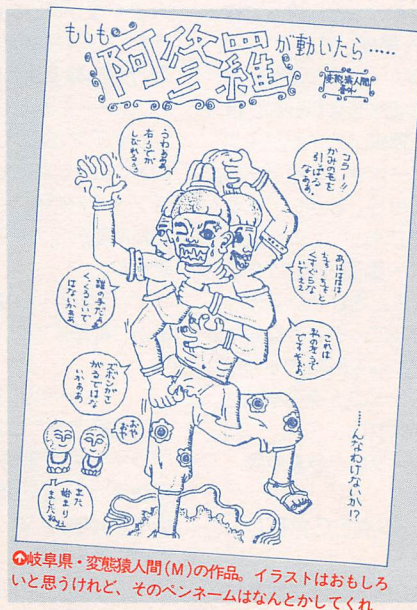 もしも
阿修羅
が動いたら……
変態猿人間
うわあああ、
右うでが
しびれるうう
コラー!!
かみの毛を
引っぱる
なああ
あはははは
くすぐらな
いでええ
誰の手だああ
く、くるしいで
はないかああ
これは
私のぞうで
ズボンがさ
がるではな
いかああ
おや
おや
また
始まり
ましたね
……んなわけないか!?
岐阜県・変態猿人間(M)の作品。イラストはおもしろ
いと思うけれど、そのペンネームはなんとかしてくれ